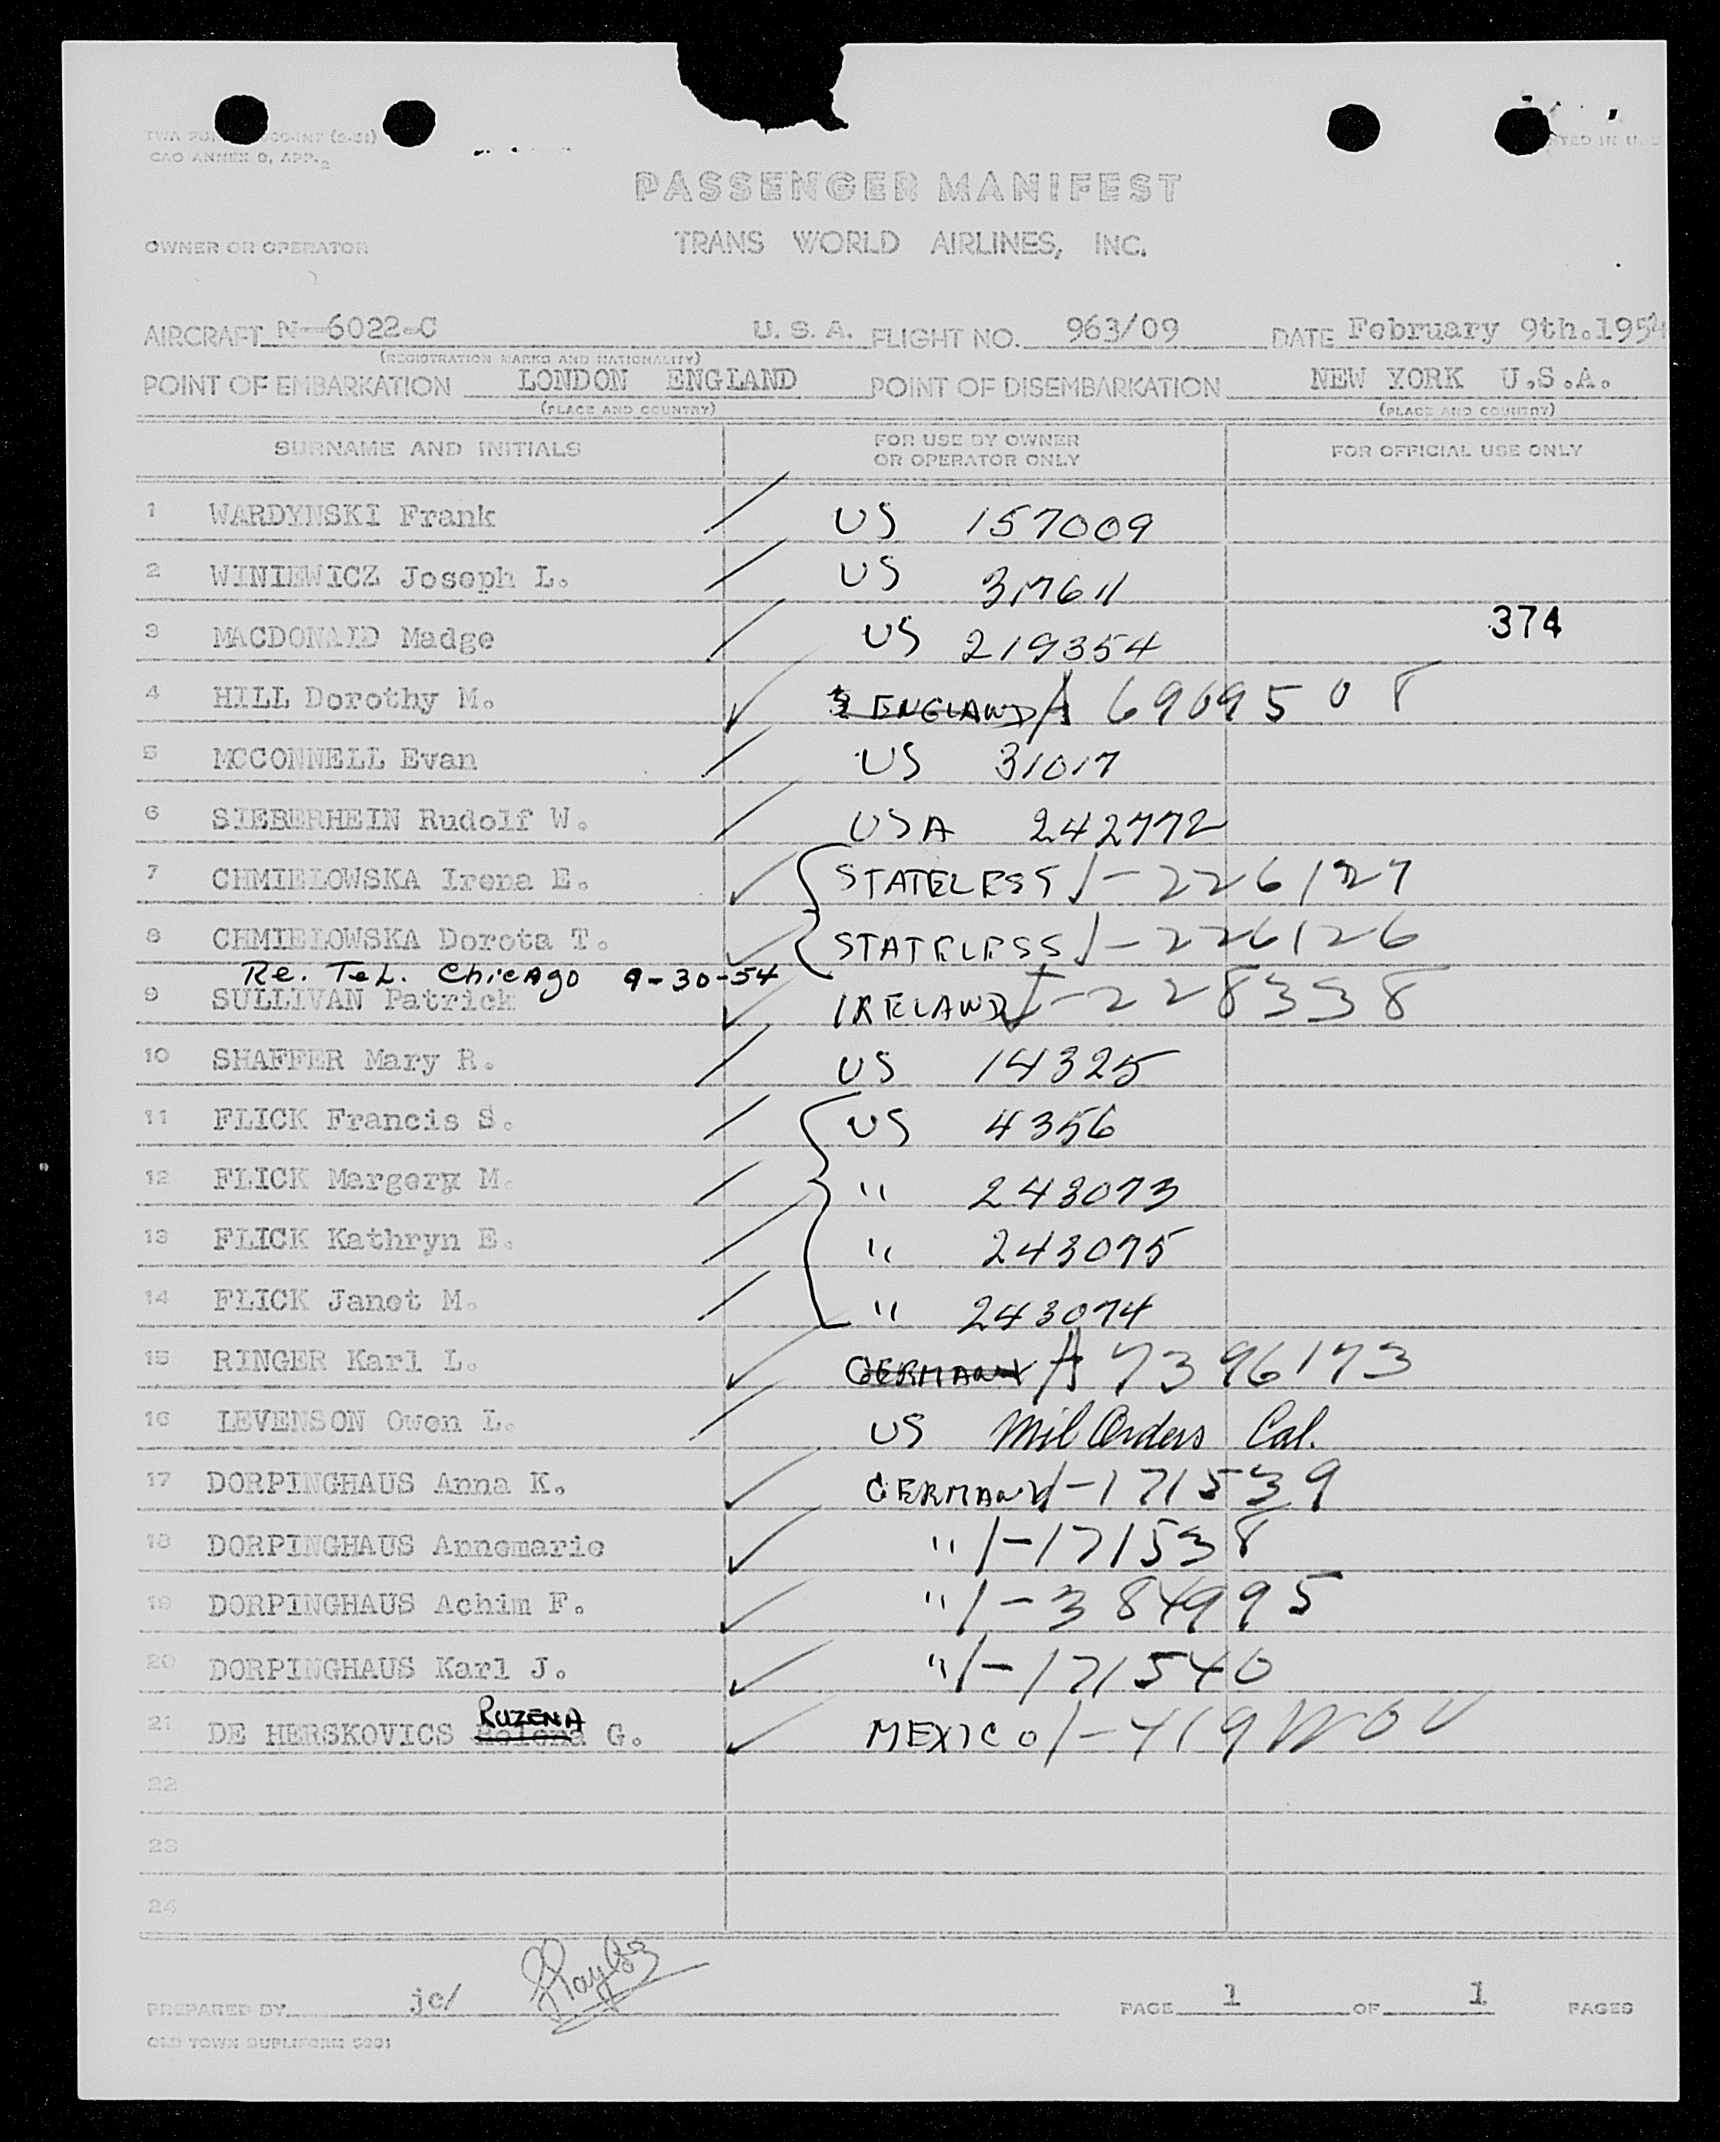 CAO ANNEX 9, APP. 2
PASSENGER MANIFEST
OWNER OR OPERATOR TRANS WORLD AIRLINES, INC.
AIRCRAFT N-6022-C U. S. A. FLIGHT NO. 963/09 DATE February 9th.1954
(REGISTRATION MARKS AND NATIONALITY)
POINT OF EMBARKATION LONDON ENGLAND POINT OF DISEMBARKATION NEW YORK U.S.A.
(PLACE AND COUNTRY) (PLACE AND COUNTRY)
SURNAME AND INITIALS FOR USE BY OWNER OR OPERATOR ONLY FOR OFFICIAL USE ONLY
1 WARDYNSKI Frank US 157009
2 WINIEWICZ Joseph L. US 317611
374
3 MACDONALD Madge US 219354
4 HILL Dorothy M. ENGLAND A 6969508
5 MCCONNELL Evan US 31017
6 SIEBERHEIN Rudolf W. USA 242772
7 CHMIELOWSKA Irena E. STATELESS I-226127
8 CHMIELOWSKA Dorota T. STATELESS I-226126
Re. Tel. Chicago 9-30-54
9 SULLIVAN Patrick IRELAND I-228338
10 SHAFFER Mary R. US 14325
11 FLICK Francis S. US 4356
12 FLICK Margery M. " 243073
13 FLICK Kathryn E. " 243075
14 FLICK Janet M. " 243074
15 RINGER Karl L. GERMANY A 7396173
16 LEVENSON Owen L. US Mil Orders Cal.
17 DORPINGHAUS Anna K. GERMANY I-171539
18 DORPINGHAUS Annemarie " I-171538
19 DORPINGHAUS Achim F. " I-384995
20 DORPINGHAUS Karl J. " I-171540
RUZENA
21 DE HERSKOVICS Helena G. MEXICO I-419
22
23
24
PREPARED BY jc/ PAGE 1 OF 1 PAGES
OLD TOWN DUPLIFORM